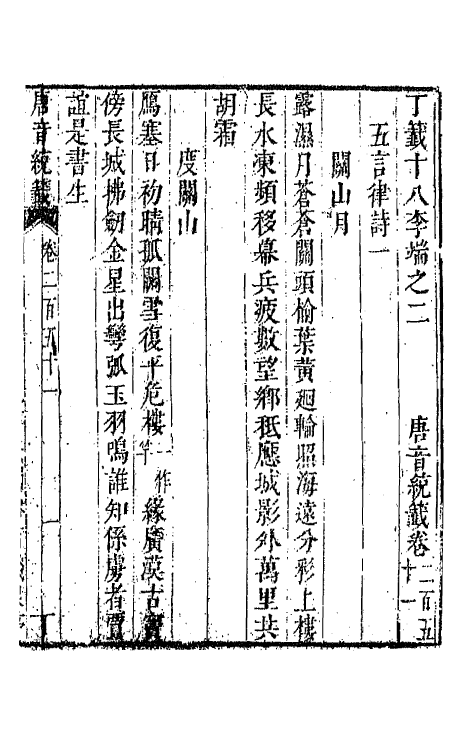 丁籖十八李端之二　唐音統籖卷二百五十一
五言律詩一
關山月
露濕月蒼蒼關頭榆葉黄廻輪照海遠分彩上樓
長水凍頻移幕兵疲數望鄉秖應城影外萬里共
胡霜
度關山
鴈塞日初晴狐關雪復平危樓一作竿緣廣漠古竇
傍長城拂劒金星出彎弧玉羽鳴誰知係虜者賈
誼是書生
唐音統籖　卷二百五十一　丁